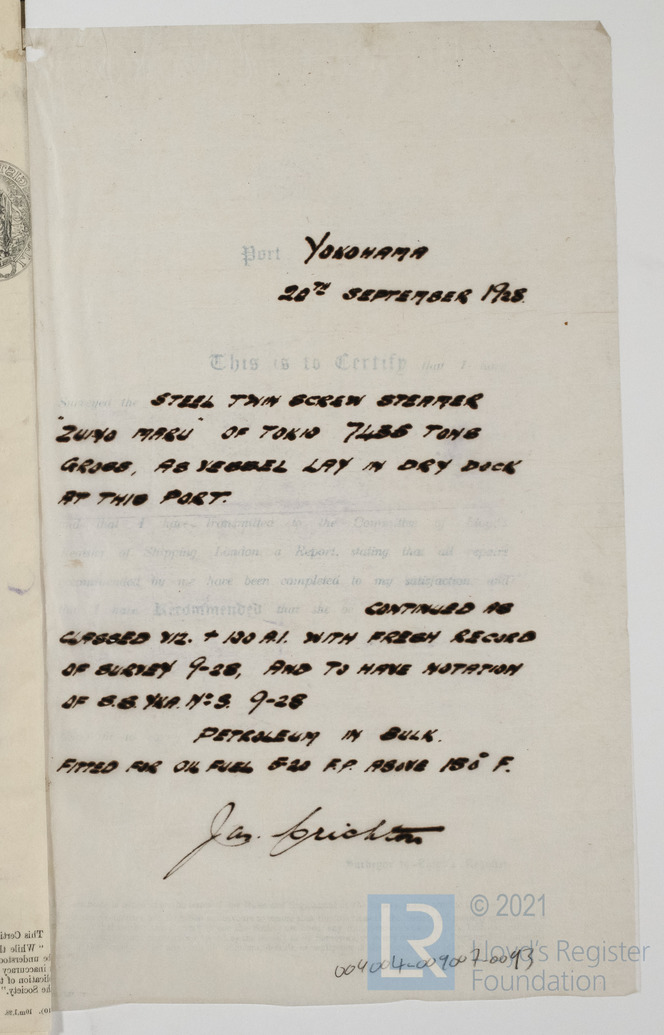 Port YOKOHAMA
20TH SEPTEMBER 1928.
This is to Certify that I have
Surveyed the STEEL TWIN SCREW STEAMER
"ZUIYO MARU" OF TOKIO 7455 TONS
GROSS, AS VESSEL LAY IN DRY DOCK
AT THIS PORT.
and that I have transmitted to the Committee of Lloyd's
Register of Shipping London a Report, stating that all repairs
recommended by me have been completed to my satisfaction and
that I have Recommended that she be CONTINUED AS
CLASSED VIZ. + 100 A.1. WITH FRESH RECORD
OF SURVEY 9-28, AND TO HAVE NOTATION
OF S.S. YKA. No 3. 9-28
PETROLEUM IN BULK.
FITTED FOR OIL FUEL 5-20 F.P. ABOVE 150° F.
Jas. Crichton
Surveyor to Lloyd's Register
004004-009007-0093
© 2021
LR
Lloyd's Register
Foundation
This Certi
" While th
be understoo
inaccuracy
ication of t
he Society."